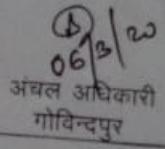 06/3/20
अंचल अधिकारी
गोविन्दपुर